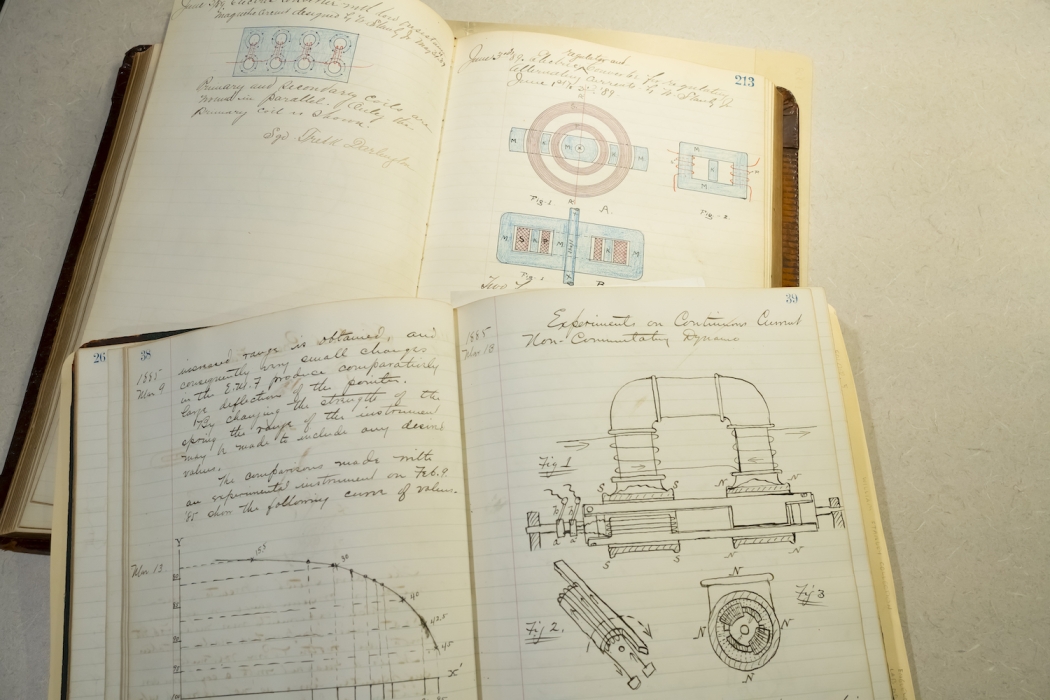 Primary and Secondary coils are
wound in parallel. Only the
primary coil is shown.
Sgd Fredk Darlington
213
regulator and
June 3rd '89. Electric Converter for regulating
alternating currents by W. Stanley Jr
June 1st '89
M
M
Fig. 1
A.
M
M
Fig. 2
S
P
M
M
Fig. 1
B
26
38
1885
Mar 9.
increased range is obtained, and
consequently very small changes
in the E.M.F. produce comparatively
large deflections of the pointer.
By changing the strength of the
spring the range of the instrument
may be made to include any desired
values.
The comparisons made with
an experimental instrument on Feb. 9
'85 show the following curve of values.
Mar. 13
Y
40
42.5
45
X'
39
1885
Mar 18
Experiments on Continuous Current
Non-Commutating Dynamo
Fig 1
S
S
N
N
b
b'
a
a'
S
S
N
N
Fig 2.
N
Fig 3
N
N